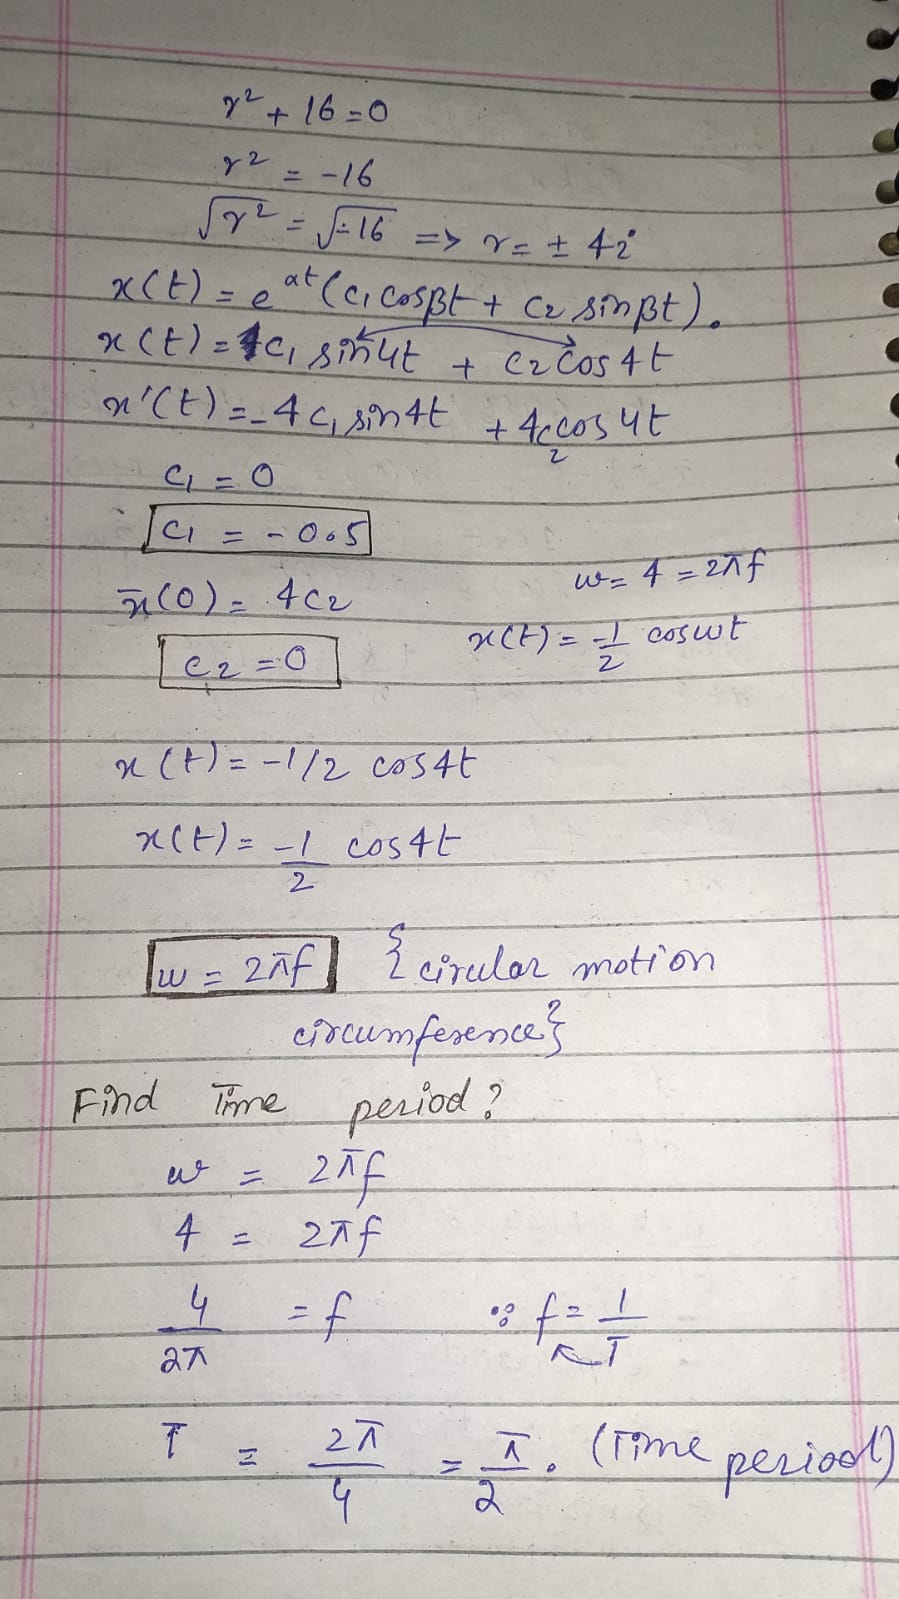 r² + 16 = 0
r² = -16
√r² = √-16 => r = ± 4i
x(t) = e^at (c₁ cosβt + c₂ sinβt).
x(t) = c₁ sin4t + c₂ cos4t
x'(t) = -4c₁ sin4t + 4c₂ cos4t
c₁ = 0
c₁ = -0.5
x̄(0) = 4c₂
w = 4 = 2πf
c₂ = 0
x(t) = -1/2 coswt
x(t) = -1/2 cos4t
x(t) = -1/2 cos4t
w = 2πf {circular motion
circumference}
Find Time period?
w = 2πf
4 = 2πf
4/2π = f ∵ f = 1/T
T = 2π/4 = π/2. (Time period)